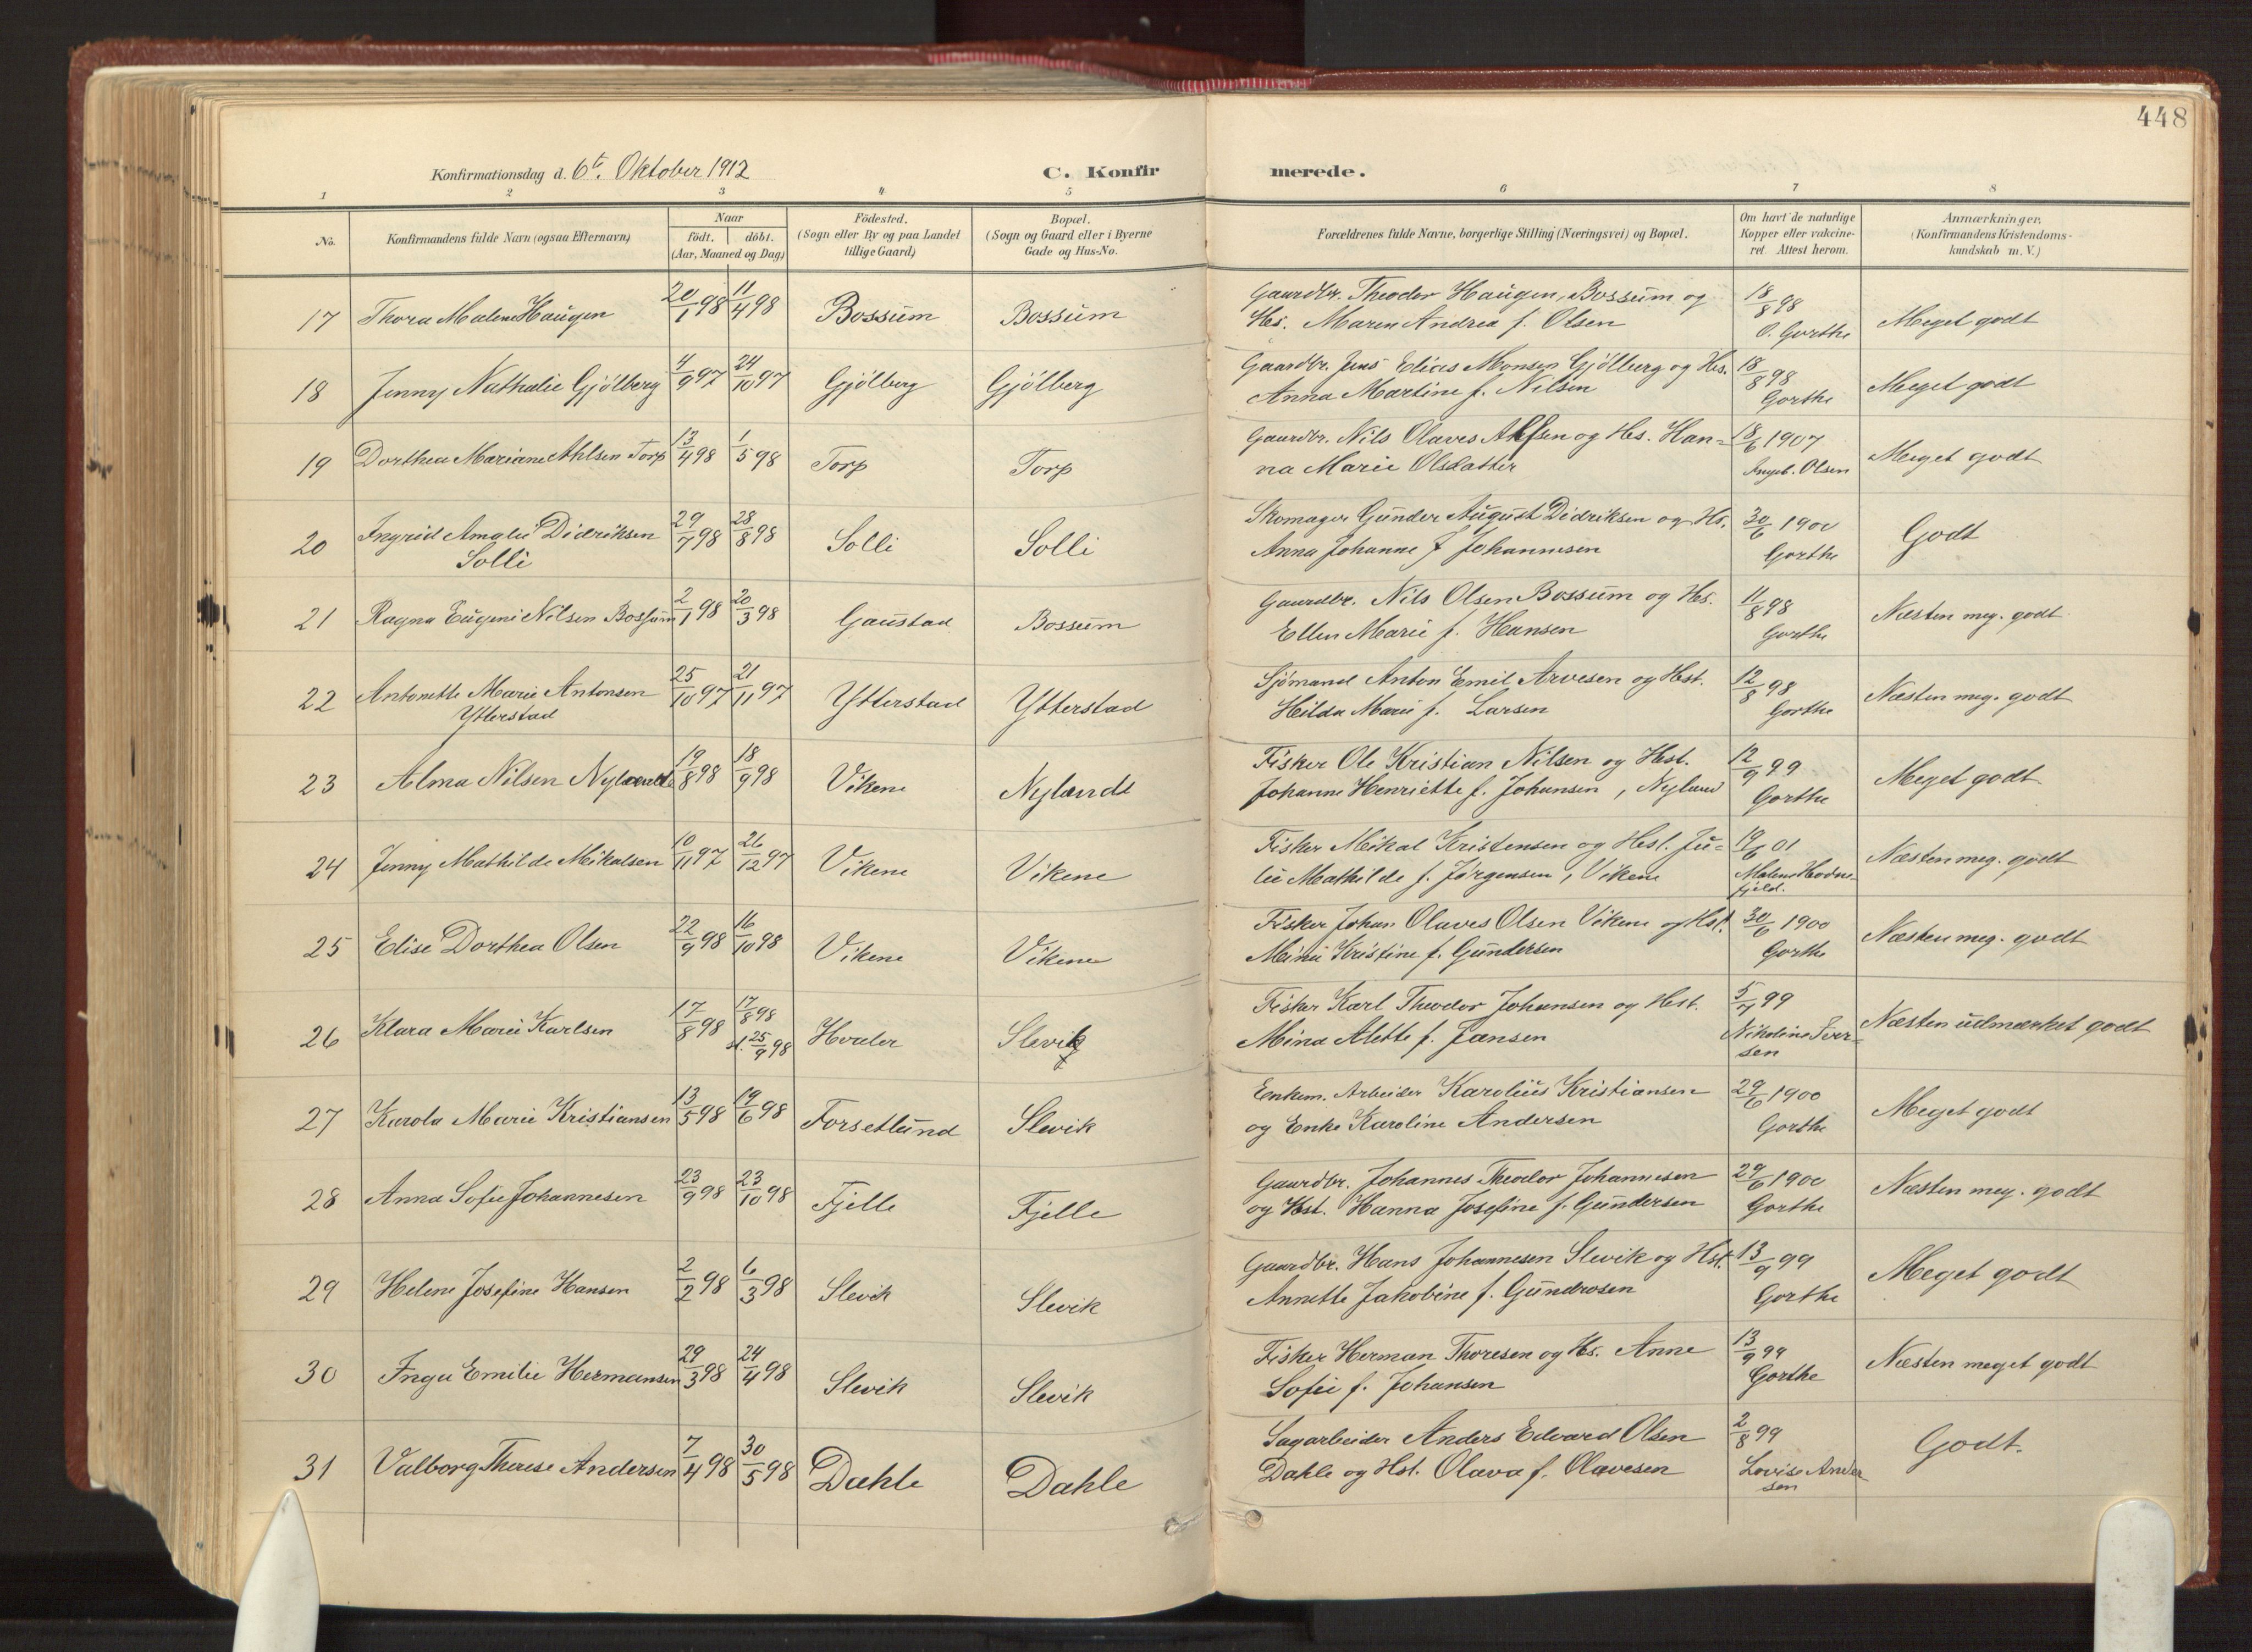 448
Konfirmationsdag d. 6te. Oktober 1912
C. Konfir merede.
1 2 3 4 5 6 7 8
No.
Konfirmandens fulde Navn (ogsaa Efternavn)
Naar
födt. döbt.
(Aar, Maaned og Dag)
Födested.
(Sogn eller By og paa Landet
tillige Gaard)
Bopæl.
(Sogn og Gaard eller i Byerne
Gade og Hus-No.
Forældrenes fulde Navne, borgerlige Stilling (Næringsvei) og Bopæl.
Om havt de naturlige
Kopper eller vakcine-
ret. Attest herom.
Anmærkninger.
(Konfirmandens Kristendoms-
kundskab m. V.)
17 Thora Malene Haugen 20/1 98 11/4 98 Bossum Bossum
Gaardbr. Theodor Haugen, Bossum og
Hs. Maren Andrea f. Olsen
18/8 98
O. Gorthe
Meget godt
18 Jenny Nathalie Gjölberg 4/9 97 24/10 97 Gjölberg Gjölberg
Gaardbr. Jens Elias Monsen Gjölberg og Hs.
Anna Martine f. Nilsen
18/8 98
Gorthe
Meget godt
19 Dorthea Mariane Ahlsen Torp 13/4 98 1/5 98 Torp Torp
Gaardbr. Nils Olaves Ahlsen og Hs. Han-
na Marie Olsdatter
18/6 1907
Ingeb. Olsen
Meget godt
20 Ingrid Amalie Didriksen
Solli
29/7 98 28/8 98 Solli Solli
Skomager Gunder August Didriksen og Hs.
Anna Johanne f Johannesen
30/6 1900
Gorthe
Godt
21 Ragna Eugeni Nilsen Bossum 2/1 98 20/3 98 Gaustad Bossum
Gaardbr. Nils Olsen Bossum og Hs.
Ellen Marie f. Hansen
11/8 98
Gorthe
Næsten meg. godt
22 Antonette Marie Antonsen
Ytterstad
25/10 97 21/11 97 Ytterstad Ytterstad
Sjömand Anton Emil Arvesen og Hst.
Hilda Marie f. Larsen
12/8 98
Gorthe
Næsten meg. godt
23 Alma Nilsen Nylænde 19/8 98 18/9 98 Vikene Nylændt
Fisker Ole Kristian Nilsen og Hst.
Johanne Henriette f. Johansen, Nylænd
12/9 99
Gorthe
Meget godt
24 Jenny Mathilde Mikalsen 10/11 97 26/12 97 Vikene Vikene
Fisker Mikal Kristensen og Hst. Ju-
lie Mathilde f. Jørgensen, Vikene
19/6 01
Malene Hodne-
fjeld.
Næsten meg. godt
25 Elise Dorthea Olsen 22/9 98 16/10 98 Vikene Vikene
Fisker Johan Olaves Olsen Vikene og Hst.
Mina Kristine f. Gundersen
30/6 1900
Gorthe
Næsten meg. godt
26 Klara Marie Karlsen 17/8 98 17/8 98
st. 25/9 98
Hvaler Slevik
Fisker Karl Theodor Johansen og Hst.
Mina Alette f. Jansen
5/7 99
Nikoline Iver-
sen
Næsten udmærket godt
27 Karola Marie Kristiansen 13/5 98 19/6 98 Forsetlund Slevik
Enkem. Arbeider Karolius Kristiansen
og Enke Karoline Andersen
29/6 1900
Gorthe
Meget godt
28 Anna Sofie Johannesen 23/9 98 23/10 98 Fjelle Fjelle
Gaardbr. Johannes Theodor Johannesen
og Hst. Hanna Josefine f. Gundersen
29/6 1900
Gorthe
Næsten meg. godt
29 Helene Josefine Hansen 2/2 98 6/3 98 Slevik Slevik
Gaardbr. Hans Johannesen Slevik og Hst.
Annette Jakobine f. Gundrosen
13/9 99
Gorthe
Meget godt
30 Inga Emilie Hermansen 29/3 98 24/4 98 Slevik Slevik
Fisker Herman Thoresen og Hs. Anne
Sofie f. Johansen
13/9 99
Gorthe
Næsten meget godt
31 Valborg Therese Andersen 7/4 98 30/5 98 Dahle Dahle
Sagarbeider Anders Edvard Olsen
Dahle og Hst. Olava f. Olavesen
2/8 99
Lovise Ander
sen
Godt.